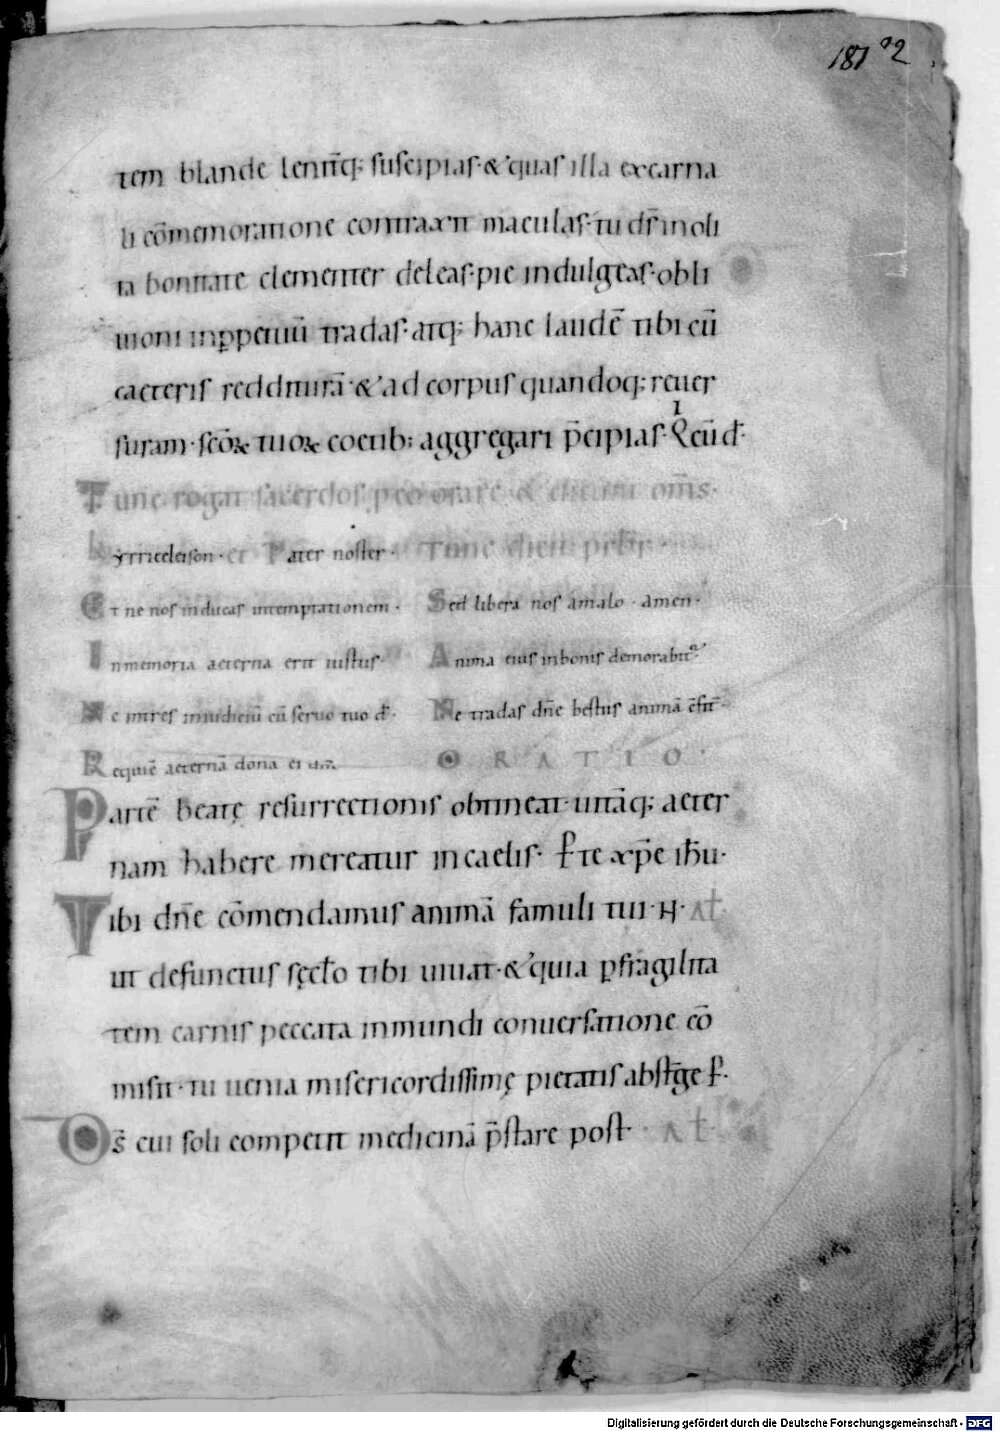 181 92
tem blande leniт̄q; suscipias· & quas illa excarna
li cōmemoratione contraxit maculas· tu dn̄s inoli
ta bonitate clementer deleas· pie indulgeas· obli
uioni inꝑpetuū tradas· atq; hanc laudē tibi cū
caeteris redditurā· & ad corpus quandoq; reuer
suram· scōꝝ tuoꝝ coetib; aggregari p̄cipias· Qͥ cū d·
Tunc rogat sacerdos p eo orare· & dicunt om̄s·
Kyrrieeleison· et Pater noster· Tunc dicit prbr·
Et ne nos inducas intemptationem· Sed libera nos amalo· amen·
Inmemoria aeterna erit iustus· Anima eius inbonis demorabit᷑
Ne intres iniudiciū cū seruo tuo d· Ne tradas dn̄e bestiis animā c̄fit̄·
Requiē aeternā dona ei dn̄e· ORATIO·
Partē beatę resurrectionis obtineat· uitāq; aeter
nam habere mereatur incaelis· P te xp̄e ih̄u·
Tibi dn̄e cōmendamus animā famuli tui· N· At
ut defunctus sęclo tibi uiuat· & quia ꝑfragilita
tem carnis peccata inmundi conuersatione cō
misit· tu uenia misericordissimę pietatis abst̄ge P·
Ds̄ cui soli competit medicinā p̄stare post· At
Digitalisierung gefördert durch die Deutsche Forschungsgemeinschaft - DFG